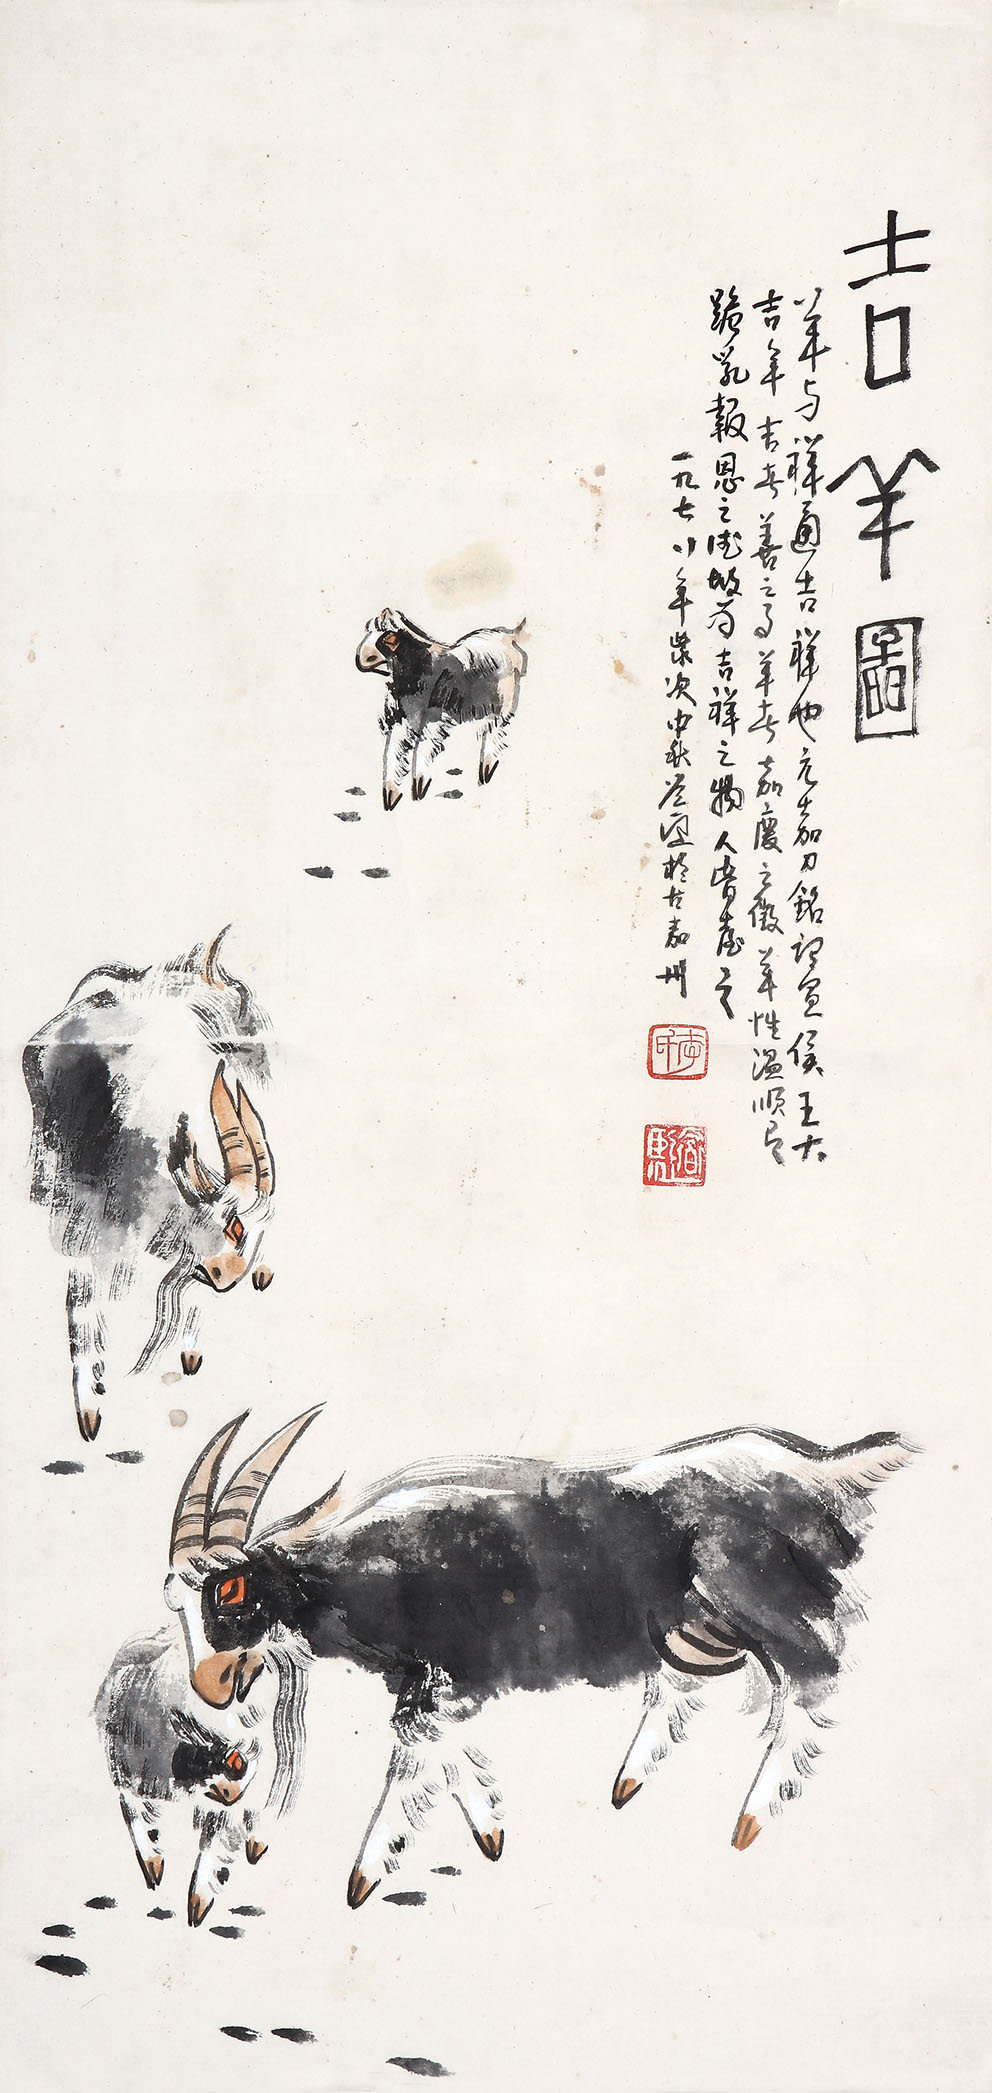 吉羊圖
羊与祥通吉祥也元嘉刀銘譚宜侯王大
吉羊吉者善之事羊者嘉慶之徵羊性温順有
跪乳報恩之德故为吉祥之物人皆喜之
一九七八年歲次中秋道熙於古嘉州
李
道熙